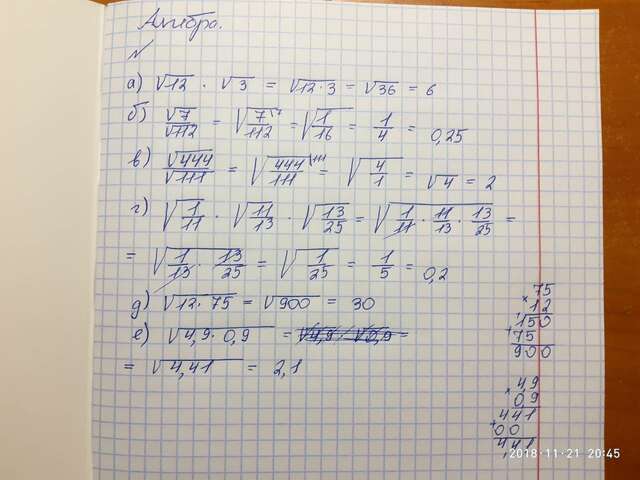 Алгебра.
№
а) √12 · √3 = √12·3 = √36 = 6
б) √7/√112 = √7/112 = √1/16 = 1/4 = 0,25
в) √444/√111 = √444/111 = √4/1 = √4 = 2
г) √1/11 · √11/13 · √13/25 = √1/11 · 11/13 · 13/25 =
= √1/13 · 13/25 = √1/25 = 1/5 = 0,2
д) √12·75 = √900 = 30
е) √4,9·0,9 = √4,9 · √0,9 =
= √4,41 = 2,1
75
× 12
150
+ 75
900
4,9
× 0,9
441
+ 00
4,41
2018·11·21 20:45